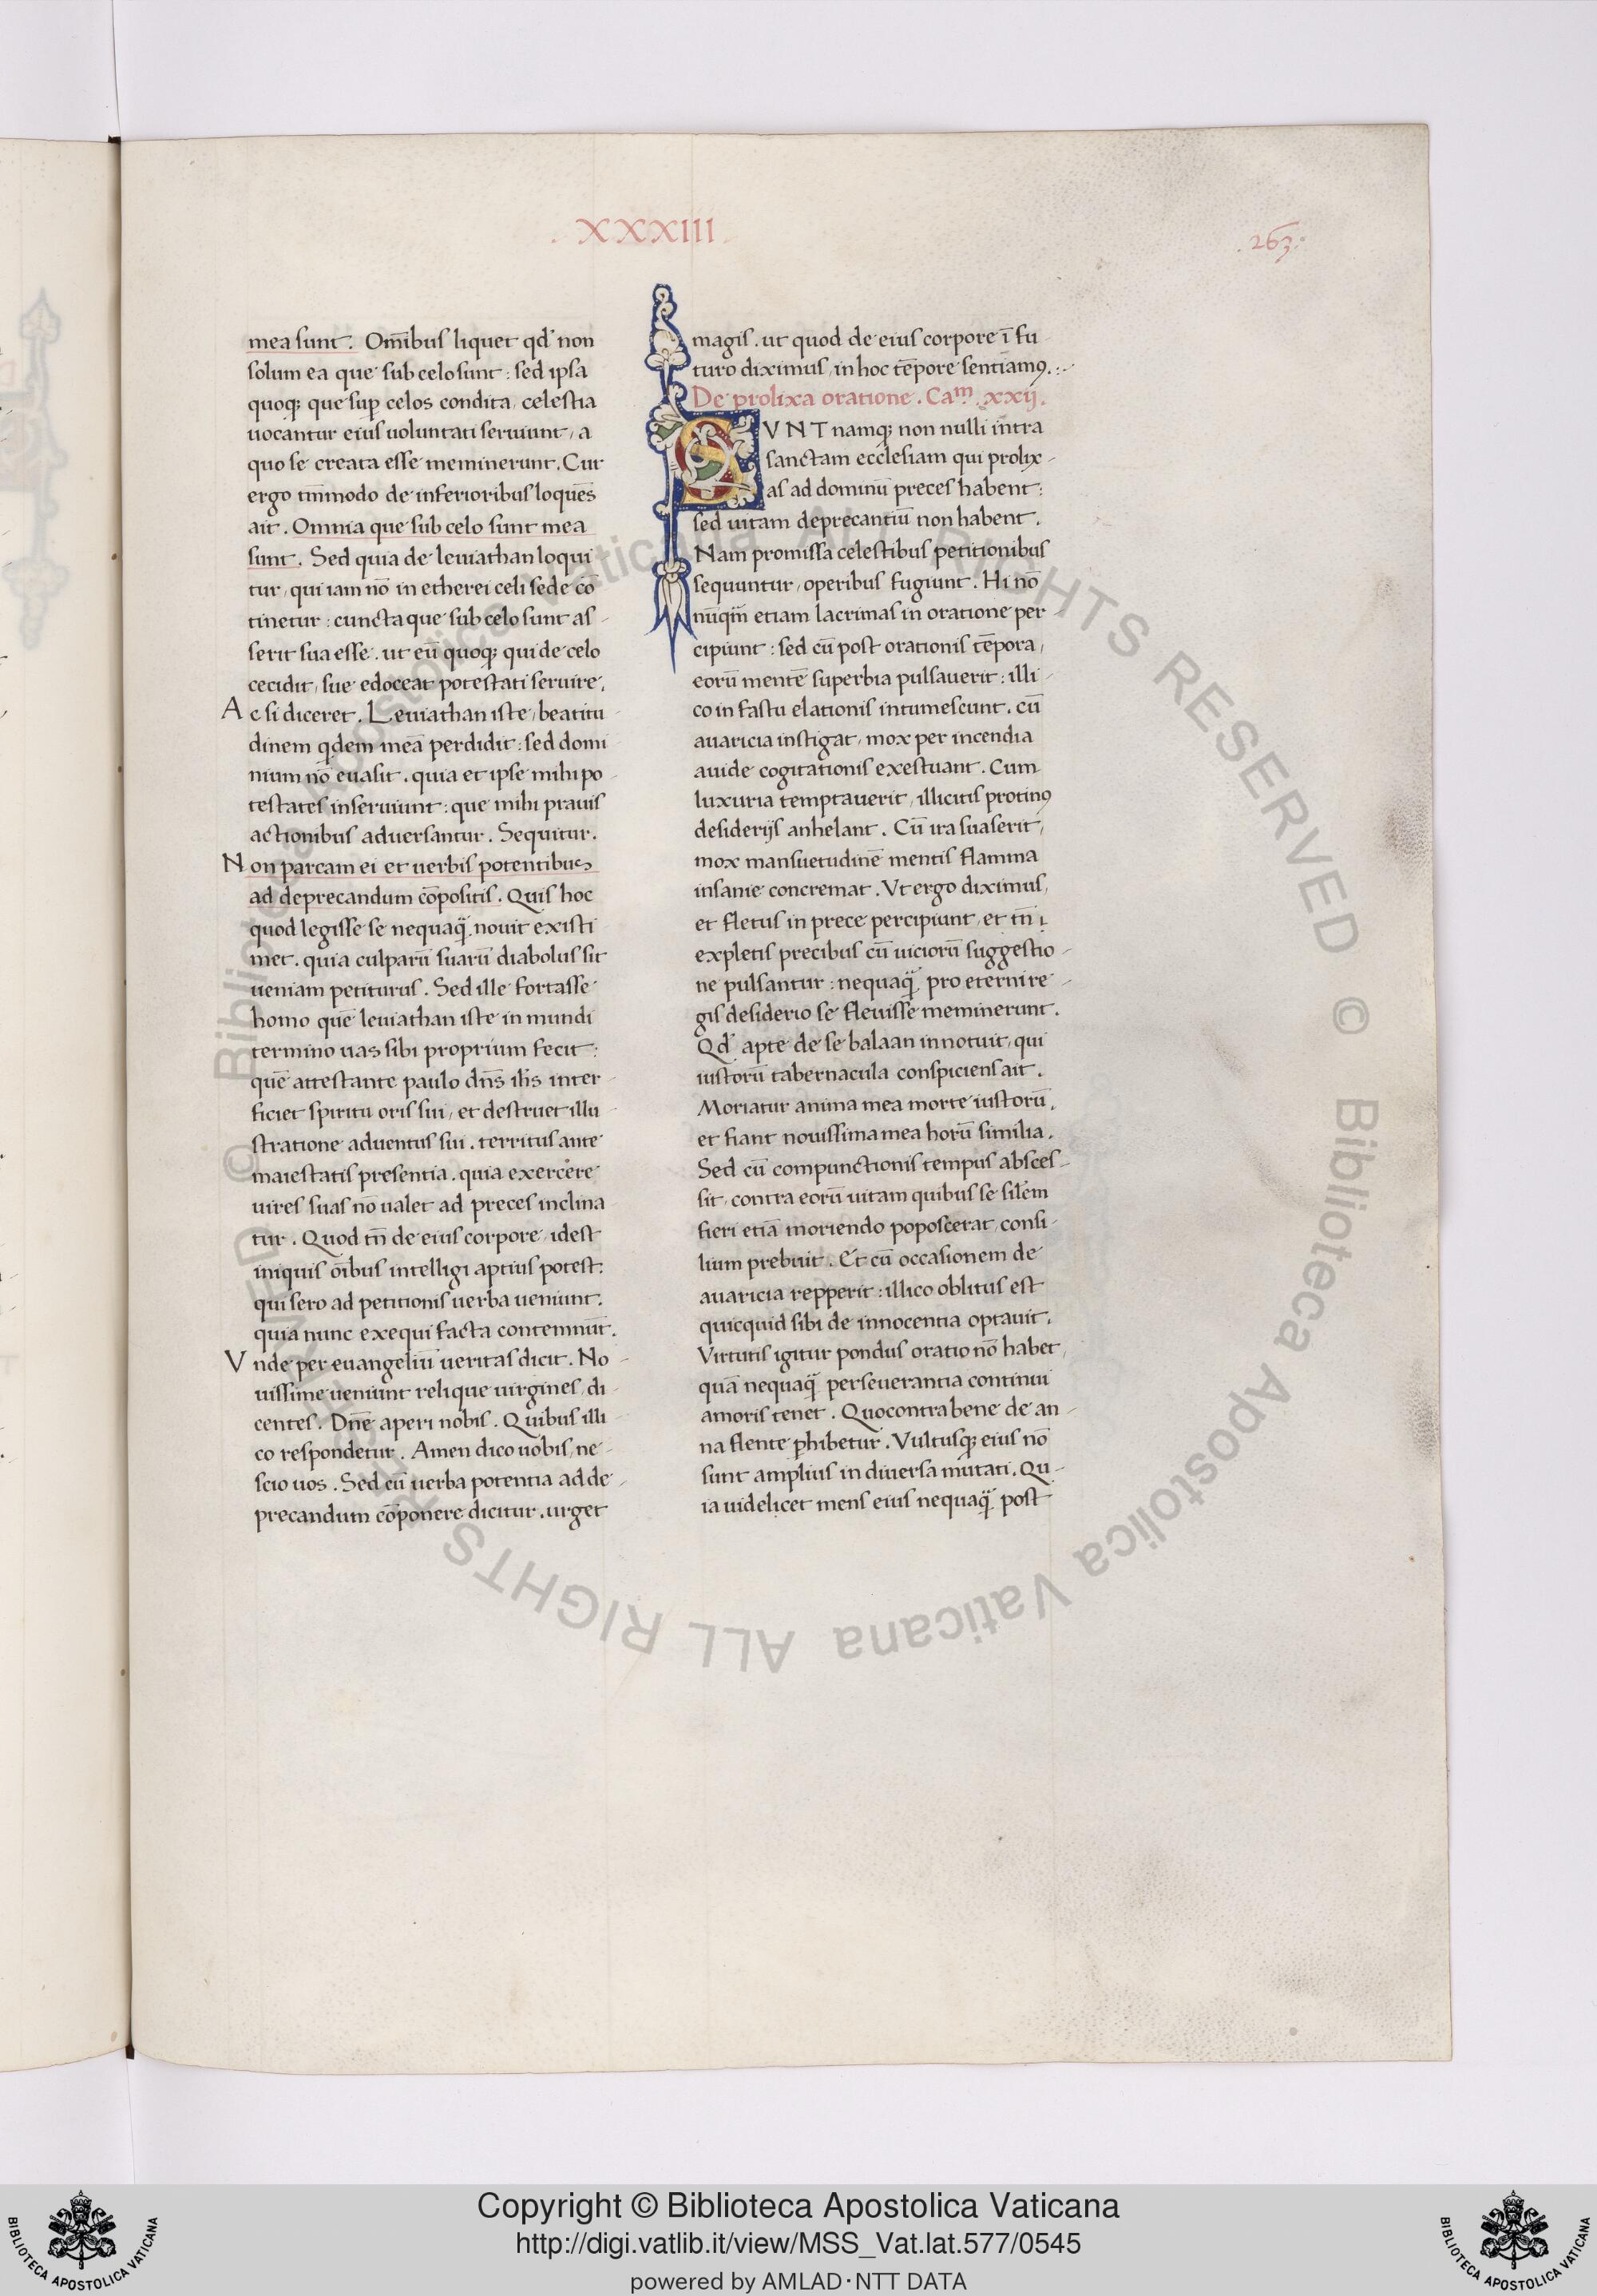 . XXXIII .
. 263 .
mea sunt. Om̅ibus liquet qd' non
solum ea que sub celo sunt : sed ipsa
quoq; que sup̱ celos condita, celestia
uocantur eius uoluntati seruiunt, a
quo se creata esse meminerunt. Cur
ergo tm̅modo de inferioribus loque̅s
ait. Omnia que sub celo sunt mea
sunt. Sed quia de leuiathan loqui
tur, qui iam no̅ in etherei celi sede co̅
tinetur : cuncta que sub celo sunt as-
serit sua esse. ut eu̅ quoq; qui de celo
cecidit, sue edoceat potestati seruire.
Ac si diceret. Leuiathan iste, beatitu-
dinem q̇dem mea̅ perdidit : sed domi
nium no̅ euasit. quia et ipse mihi po-
testates inseruiunt : que mihi prauis
actionibus aduersantur. Sequitur.
Non parcam ei et uerbis potentibus
ad deprecandum co̅positis. Quis hoc
quod legisse se nequaq̈. nouit existi
met. quia culparu̅ suaru̅ diabolus sit
ueniam petiturus. Sed ille fortasse
homo que̅ leuiathan iste in mundi
termino uas sibi proprium fecit :
que̅ attestante paulo dn̅s ih̅s inter-
ficiet spiritu oris sui, et destruet illu-
stratione aduentus sui. territus ante
maiestatis presentia. quia exercere
uires suas no̅ ualet ad preces inclina
tur. Quod tn̅ de eius corpore, idest
iniquis oi̅bus intelligi aptius potest.
qui sero ad petitionis uerba ueniunt.
quia nunc exequi facta contemnu̅t.
Vnde per euangeliu̅ ueritas dicit. No-
uissime ueniunt relique uirgines, di-
centes. Dn̅e aperi nobis. Quibus illi-
co respondetur. Amen dico uobis, ne-
scio uos. Sed cu̅ uerba potentia ad de-
precandum co̅ponere dicitur. urget
magis. ut quod de eius corpore i̅ fu-
turo diximus, in hoc te̅pore sentiam9.:-
De prolixa oratione. Caᵐ. xxij.
SVNT namq; non nulli intra
sanctam ecclesiam qui prolix-
as ad dominu̅ preces habent :
sed uitam deprecantiu̅ non habent.
Nam promissa celestibus petitionibus
sequuntur, operibus fugiunt. Hi no̅
nu̅qm̅ etiam lacrimas in oratione per-
cipiunt : sed cu̅ post orationis te̅pora,
eoru̅ mente̅ superbia pulsauerit : illi-
co in fastu elationis intumescunt. cu̅
auaricia instigat, mox per incendia
auide cogitationis exestuant. Cum
luxuria temptauerit, illicitis protin9
desiderijs anhelant. Cu̅ ira suaserit,
mox mansuetudine̅ mentis flamma
insanie concremat. Vt ergo diximus,
et fletus in prece percipiunt, et tn̅
expletis precibus cu̅ uicioru̅ suggestio-
ne pulsantur : nequaq̈. pro eterni re-
gis desiderio se fleuisse meminerunt.
Qd' apte de se balaan innotuit, qui
iustoru̅ tabernacula conspiciens ait.
Moriatur anima mea morte iustoru̅,
et fiant nouissima mea horu̅ similia.
Sed cu̅ compunctionis tempus absces-
sit, contra eoru̅ uitam quibus se sile̅m
fieri etia̅ moriendo poposcerat, consi-
lium prebuit. Et cu̅ occasionem de
auaricia repperit : illico oblitus est
quicquid sibi de innocentia optauit.
Virtutis igitur pondus oratio no̅ habet,
qua̅ nequaq̈ perseuerantia continui
amoris tenet. Quo contra bene de an-
na flente ꝑhibetur. Vultusq; eius no̅
sunt amplius in diuersa mutati. Qu-
ia uidelicet mens eius nequaq̈. post
© Biblioteca Apostolica Vaticana ALL RIGHTS RESERVED © Biblioteca Apostolica Vaticana ALL RIGHTS RESERVED
BIBLIOTECA APOSTOLICA VATICANA
Copyright © Biblioteca Apostolica Vaticana
http://digi.vatlib.it/view/MSS_Vat.lat.577/0545
powered by AMLAD·NTT DATA
BIBLIOTECA APOSTOLICA VATICANA